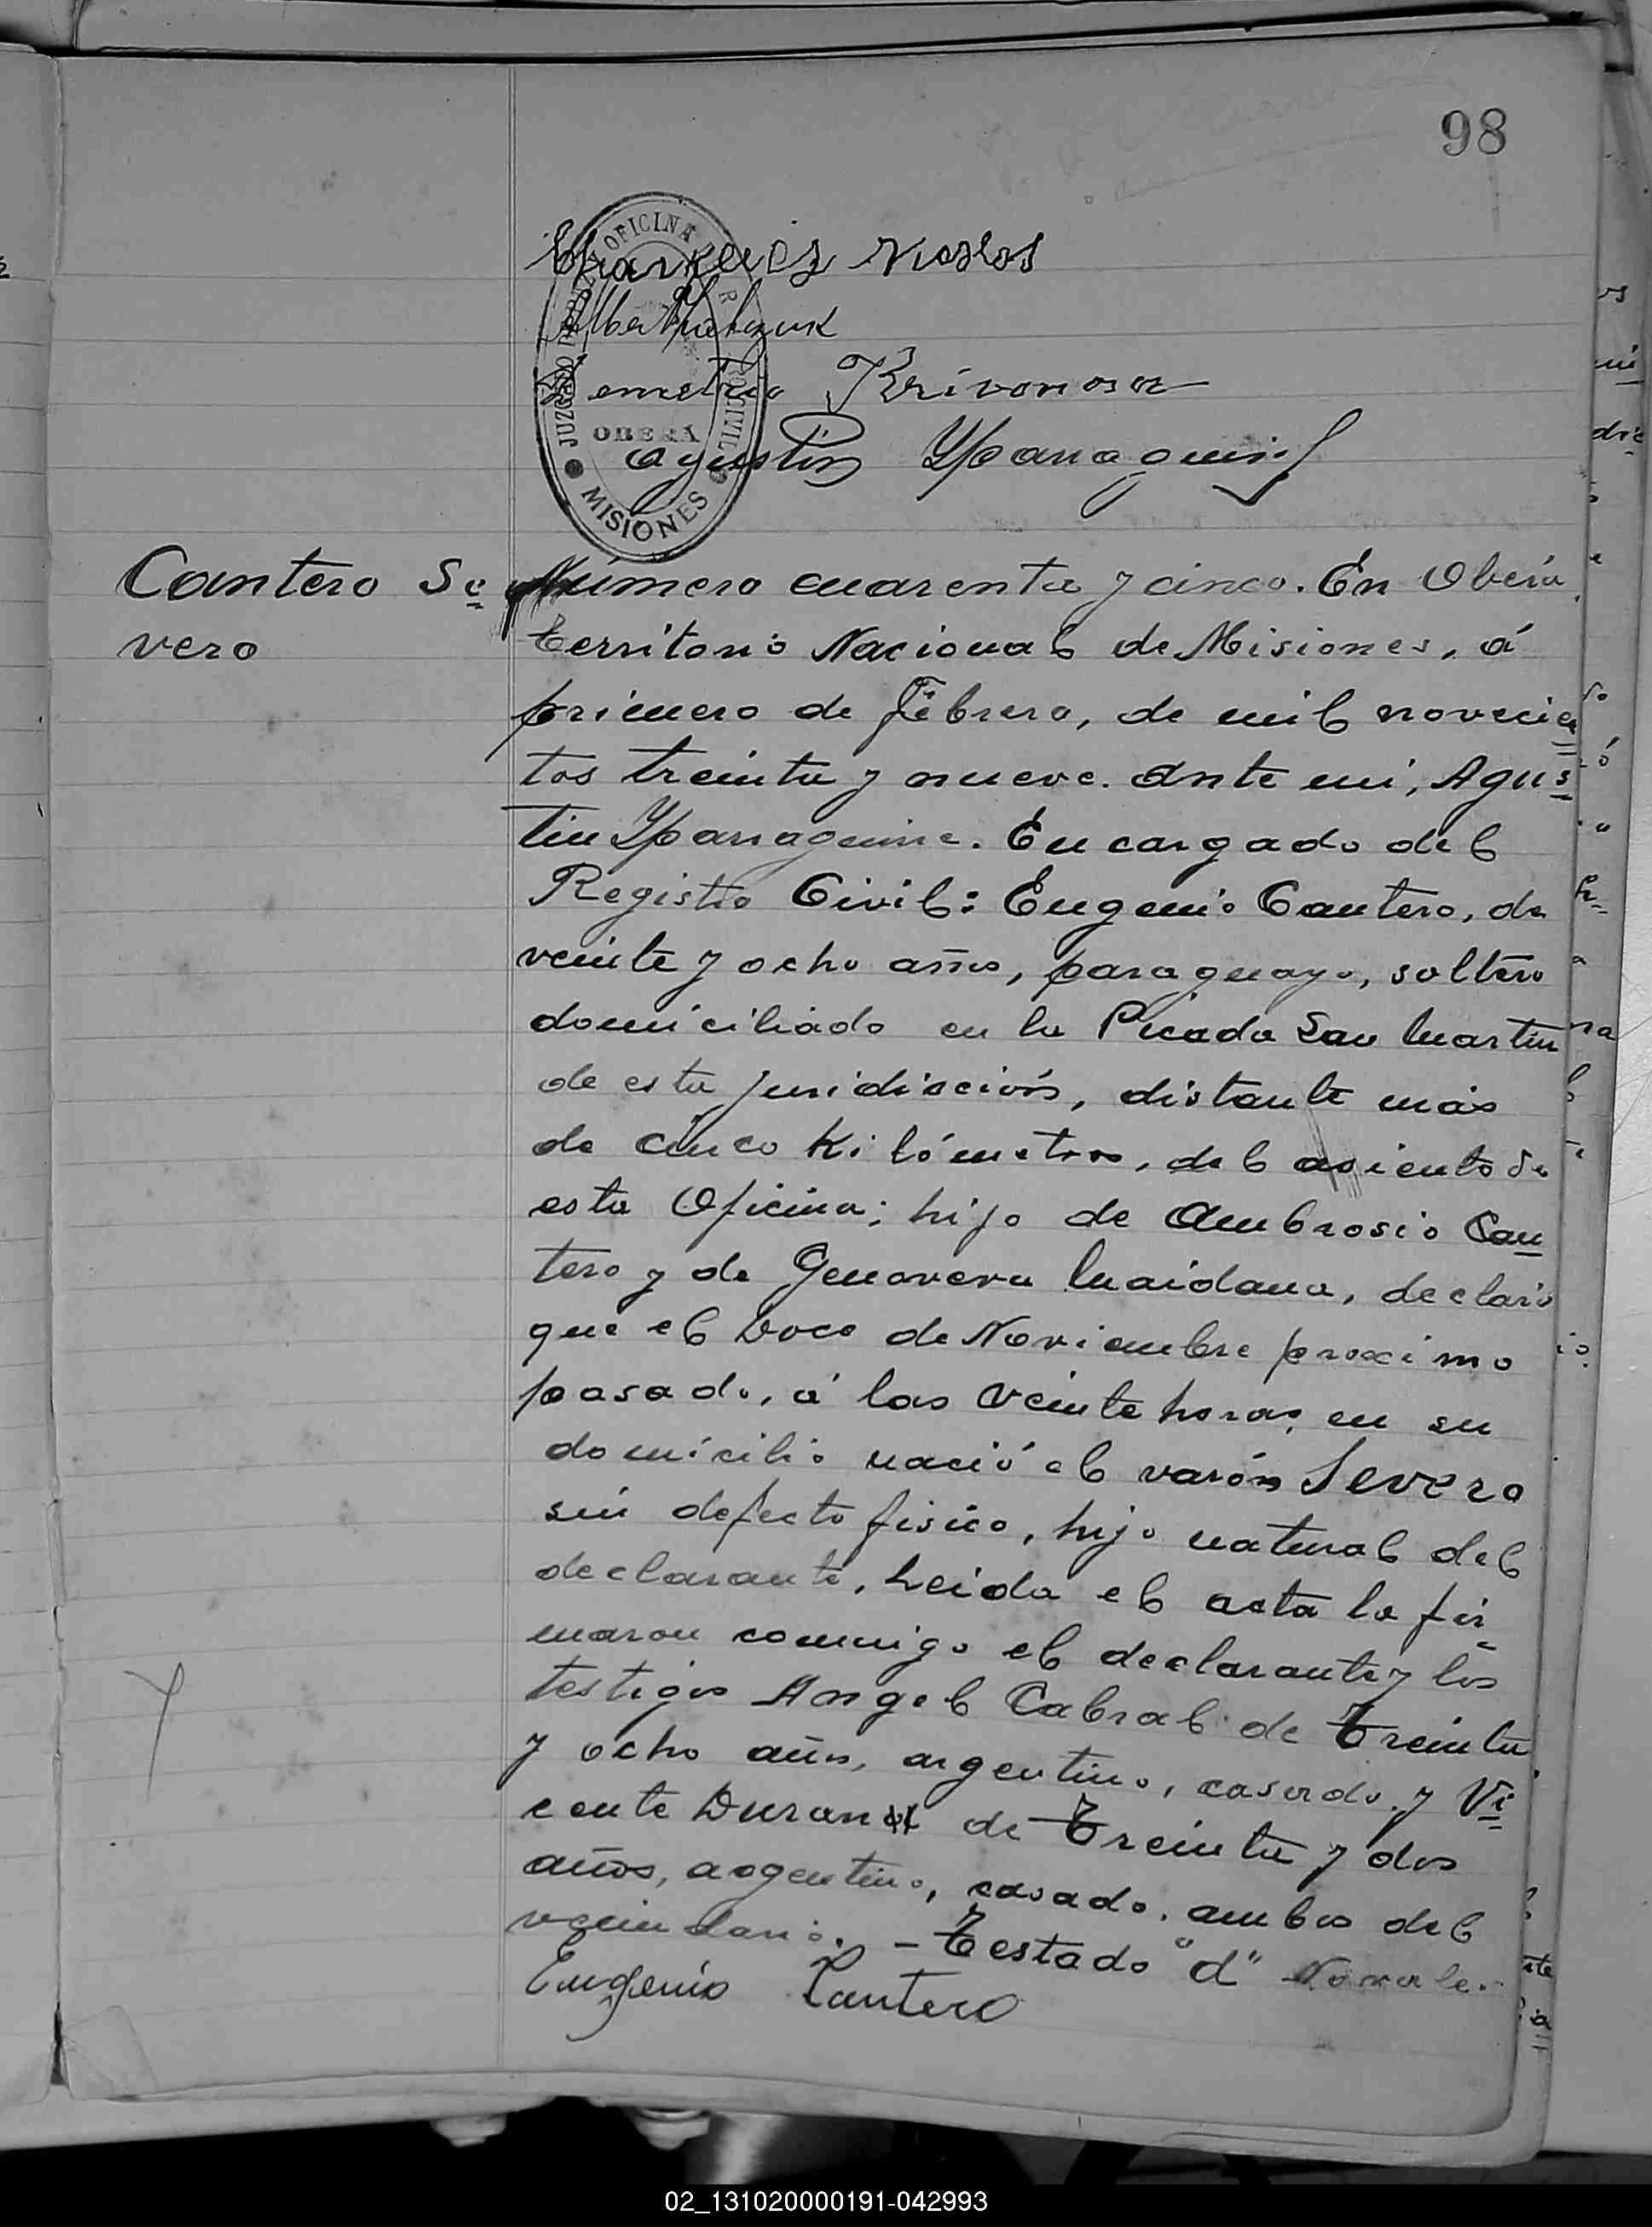 98
OFICINA
JUZGADO
R. CIVIL
OBERÁ
MISIONES
Nicolas
Demetrio Krivonosa
Agustin Yparraguirre
Cantero Se
vero
Número cuarenta y cinco. En Oberá,
territorio Nacional de Misiones, á
primero de Febrero, de mil novecien
tos treinta y nueve. Ante mi, Agus
tin Yparraguirre. Encargado del
Registro Civil: Eugenio Cantero, de
veinte y ocho años, paraguayo, soltero
domiciliado en la Picada San Martin
de esta juridisción, distante más
de cinco kilómetros, del asiento de
esta Oficina; hijo de Ambrosio Can
tero y de Genoveva Maidana, declaró
que el Doce de Noviembre proximo
pasado, á las veinte horas, en su
domicilio nació el varón Severo
sin defecto fisico, hijo natural del
declarante, Leida el acta la fir
maron conmigo el declarante y los
testigos Angel Cabral de Treinta
y ocho años, argentino, casado, y Vi
cente Duran de Treinta y dos
años, argentino, casado, ambos del
vecindario. - Testado "d" No vale.
Eugenio Cantero
02_131020000191-042993